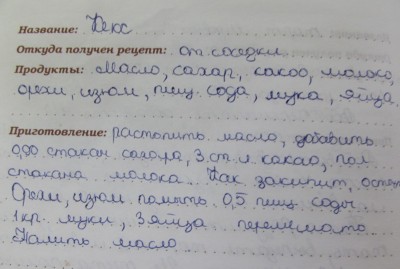 Название: Кекс
Откуда получен рецепт: от соседки
Продукты: Масло, сахар, какао, молоко,
орехи, изюм, пищ. сода, мука, яйца.
Приготовление: растопить масло, добавить
стакан сахара, 3 ст. л. какао, пол
стакана молока. Как закипит,
Орехи, изюм 0,5 пищ. соды.
1 кр. муки, 3 яйца
масло